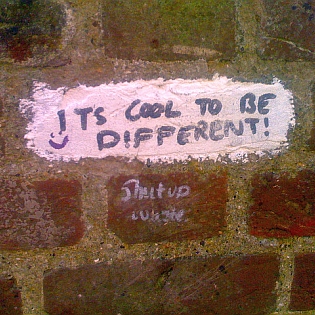 IT'S COOL TO BE
DIFFERENT!
Shut up